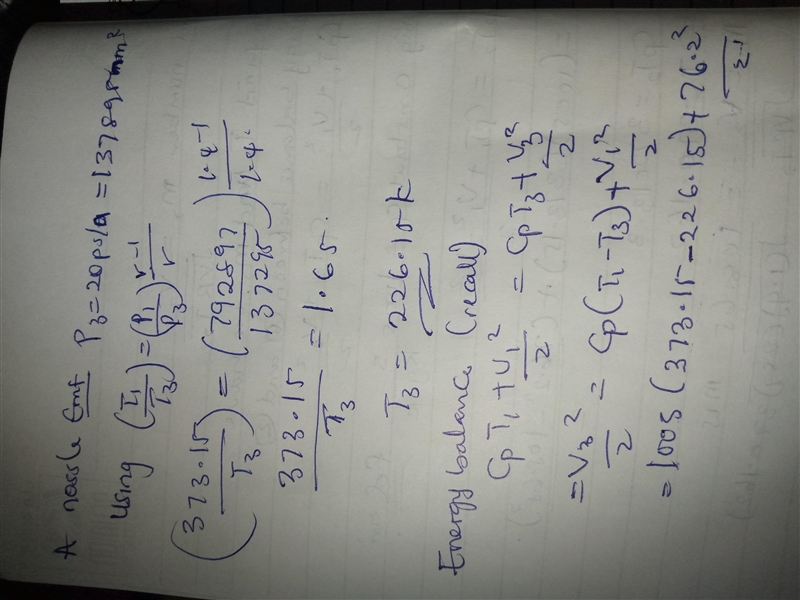 A nozzle Exit P₃=20psia=137895mm²
Using (T₁/T₃)=(P₁/P₃)^(r-1)/r
(373.15/T₃) = (792897/137295)^(1.4-1)/1.4.
373.15/T₃ = 1.65.
T₃ = 226.15k
Energy balance (recall)
CpT₁+V₁²/2 = CpT₃+V₃²/2
=V₃²/2 = Cp(T₁-T₃)+V₁²/2
=1005(373.15-226.15)+76.2²/2